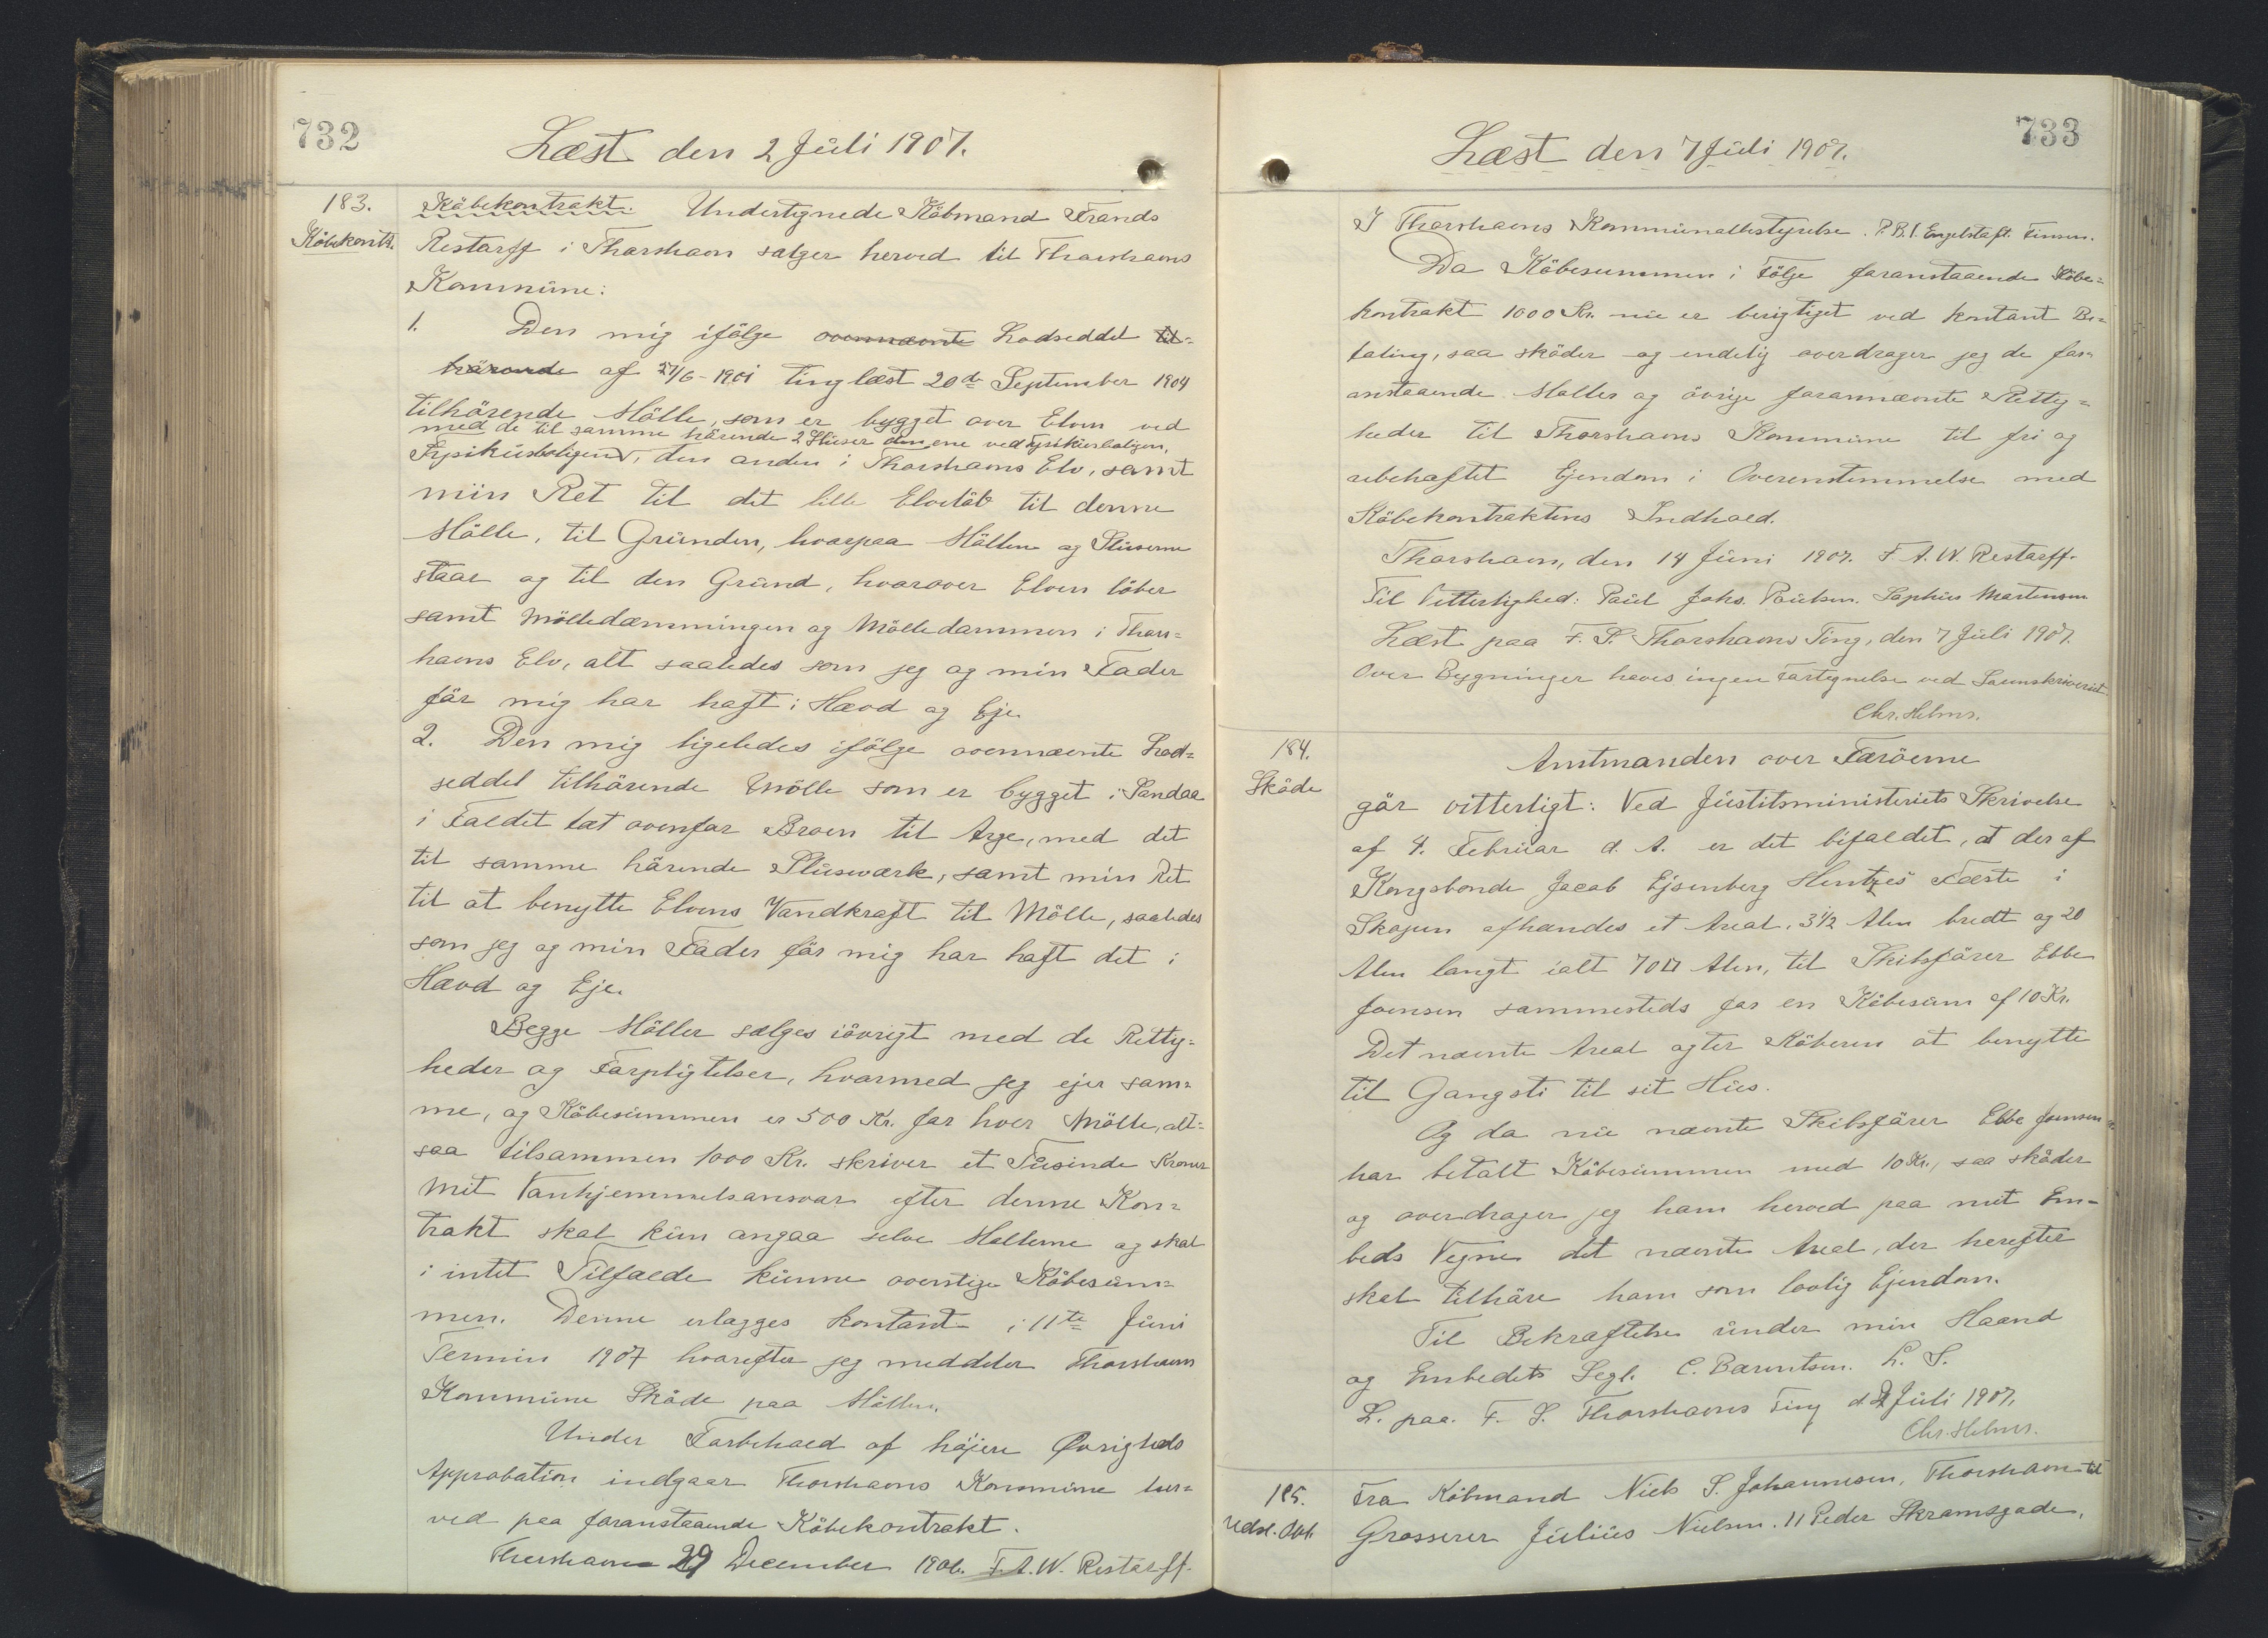 732
Læst den 2 Juli 1907.
183.
Köbekontr.
Köbekontrakt. Undertegnede Köbmand Frands
Restorff i Thorshavn sælger herved til Thorshavns
Kommune:
1. Den mig ifölge ovennævnte Lodseddel til=
hörende af 27/6-1901 tinglæst 20de September 1904
tilhörende Mölle, som er bygget over Elven ved
med de til samme hörende 2 Sluser den ene ved Fysikusboligen,
Fysikusboligen, den anden i Thorshavns Elv, samt
min Ret til det lille Elvelöb til denne
Mölle, til Grunden, hvorpaa Möllen og Sluserne
staar og til den Grund, hvorover Elven löber
samt Mölledæmningen og Mölledammen i Thors=
havns Elv, alt saaledes som jeg og min Fader
för mig har haft i Hævd og Eje.
2. Den mig ligeledes ifölge ovennævnte Lod=
seddel tilhörende Mölle som er bygget i Sandaa
i Faldet tæt ovenfor Broen til Arge, med det
til samme hörende Slusværk, samt min Ret
til at benytte Elvens Vandkraft til Mölle, saaledes
som jeg og min Fader för mig har haft det i
Hævd og Eje.
Begge Möller sælges iövrigt med de Rettig=
heder og Forpligtelser, hvormed jeg ejer sam=
me, og Köbesummen er 500 Kr. for hver Mölle, alt=
saa tilsammen 1000 Kr. skriver et Tusinde Kroner
Mit Vanhjemmelsansvar efter denne Kon=
trakt skal kun angaa selve Möllerne og skal
i intet Tilfælde kunne overstige Köbesum=
men. Denne erlægges kontant i 11te Juni
Termin 1907 hvorefter jeg meddeler Thorshavns
Kommune Sköde paa Möllen.
Under Forbehold af höjere Øvrigheds
Approbation indgaar Thorshavns Kommune her=
ved paa foranstaaende Köbekontrakt.
Thorshavn 29 December 1906. F.A.W. Restorff.
733
Læst den 7 Juli 1907.
I Thorshavns Kommunalbestyrelse. P.B.V. Engelstoft. Finsen.
Da Köbesummen i Fölge foranstaaende Köbe=
kontrakt 1000 Kr. nu er berigtiget ved kontant Be=
taling, saa sköder og endelig overdrager jeg de for=
anstaaende Möller og övrige forannævnte Rettig=
heder til Thorshavns Kommune til fri og
ubehæftet Ejendom i Overenstemmelse med
Köbekontraktens Indhold.
Thorshavn, den 14 Juni 1907. F.A.W. Restorff.
Til Vitterlighed: Paul Johs. Poulsen. Sophus Martensen
Læst paa F. S. Thorshavns Ting, den 7 Juli 1907.
Over Bygninger haves ingen Fortegnelse ved Sorenskriveriet
Chr. Helms.
184.
Sköde
Amtmanden over Færöerne
gör vitterligt: Ved Justitsministeriets Skrivelse
af 4. Februar d. A. er det bifaldet, at der af
Kongsbonde Jacob Ejsenberg Hentzes Fæste i
Skopun afhændes et Areal, 3 1/2 Alen bredt og 20
Alen langt ialt 70□ Alen, til Skibsförer Ebbe
Joensen sammesteds for en Köbesum af 10 Kr.
Det nævnte Areal agter Köberen at benytte
til Gangsti til sit Hus.
Og da nu nævnte Skibsförer Ebbe Joensen
har betalt Köbesummen med 10 Kr., saa sköder
og overdrager jeg ham herved paa mit Em=
beds Vegne det nævnte Areal, der herefter
skal tilhöre ham som lovlig Ejendom.
Til Bekræftelse under min Haand
og Embedets Segl. C. Bærentsen. L. S.
L. paa. F. S. Thorshavns Ting d. 2 Juli 1907.
Chr. Helms.
185.
Udsl. Obl.
Fra Köbmand Niels S. Johannesen, Thorshavn til
Grosserer Julius Nielsen. 11 Peder Skramsgade.